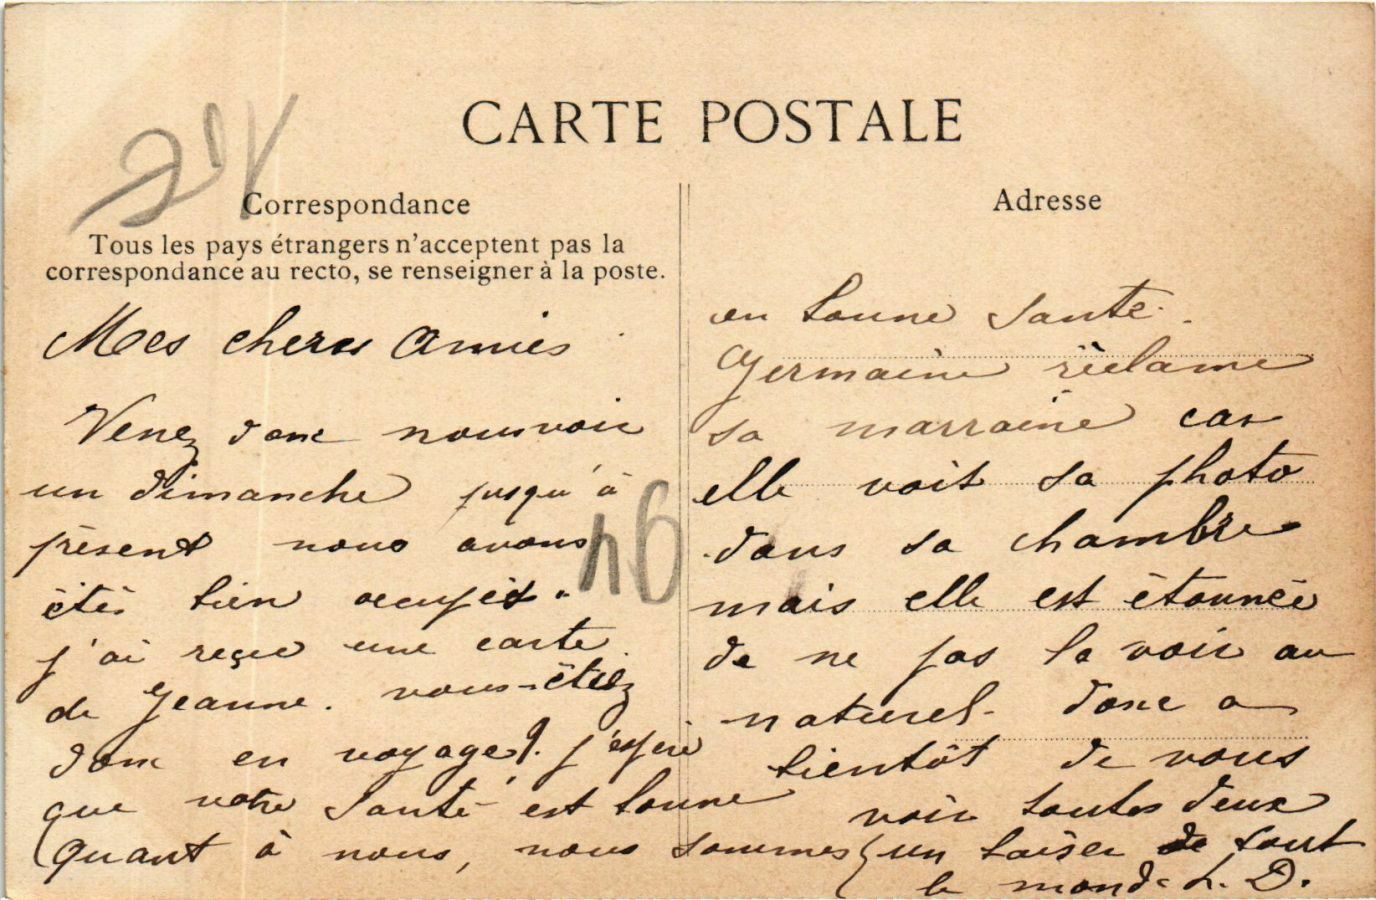 CARTE POSTALE
Correspondance
Tous les pays étrangers n'acceptent pas la
correspondance au recto, se renseigner à la poste.
Mes cheres Amies
Venez donc nous voir
un dimanche jusqu'à
présent nous avons
étés bien occupés.
j'ai reçue une carte
de Jeanne. vous-êtes
donc en voyage?. j'espère
que votre santé est bonne
Quant à nous, nous sommes
46
Adresse
en bonne santé.
Germaine réclame
sa marraine car
elle voit sa photo
dans sa chambre
mais elle est étonnée
de ne pas la voir au
naturel. donc a
bientôt de vous
voir toutes deux
un baiser de tout
le monde L. D.